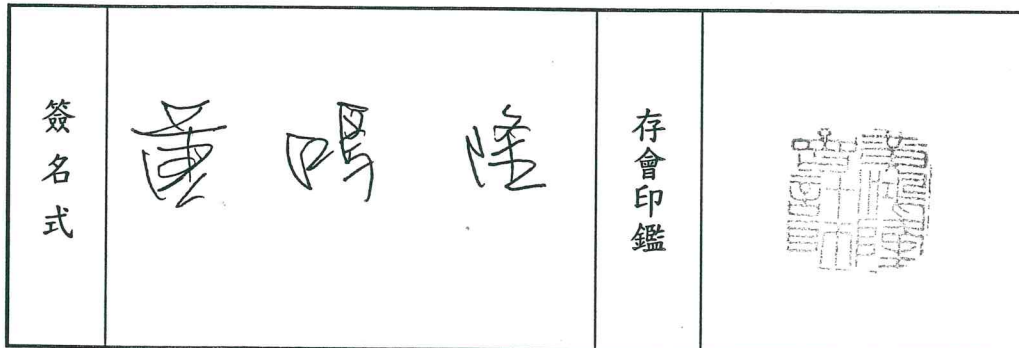 簽名式
黃鳴隆
存會印鑑